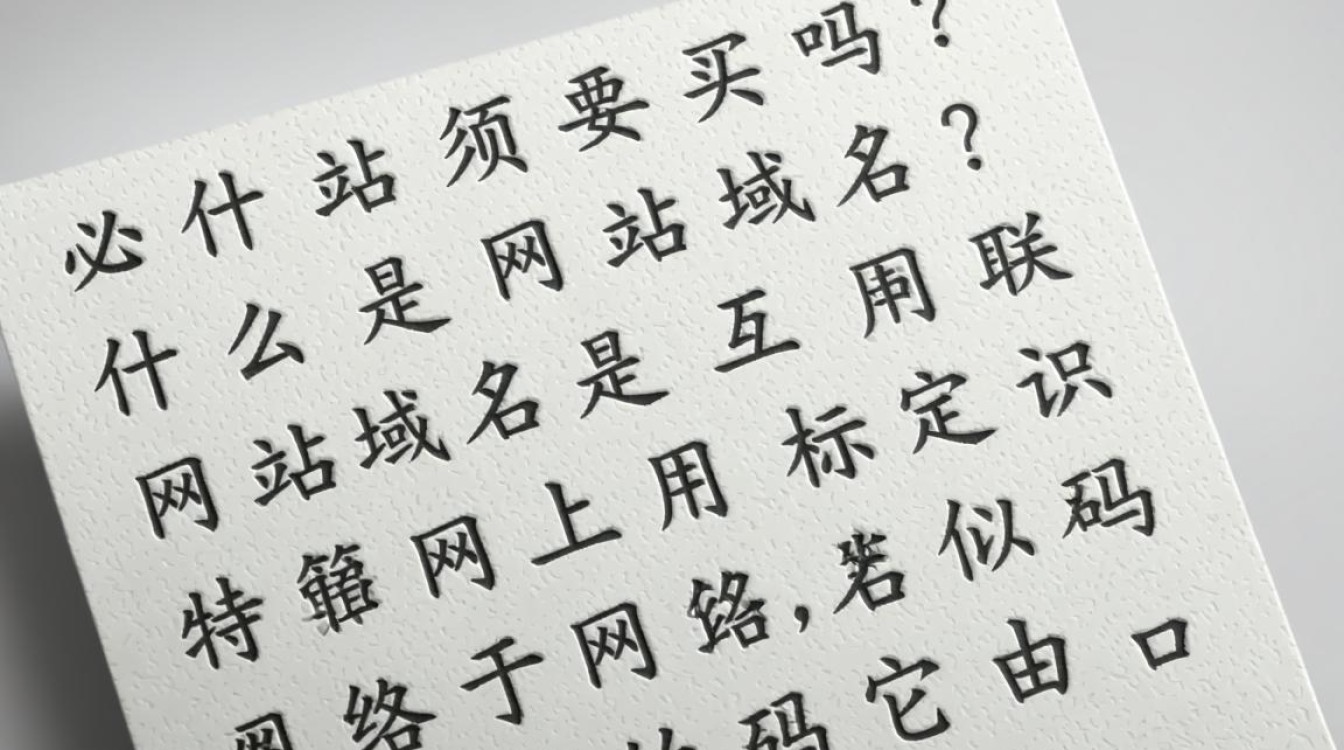 必什站须要买吗?
什么是网站域名?
网站域名是互用联
特网上用标定识
网络于网,似码
码它由口